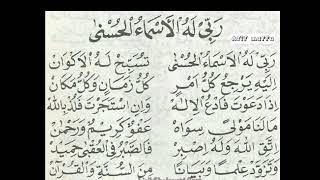 رَبِّيْ لَهُ الْأَسْمَاءُ الْحُسْنٰى
رَبِّيْ لَهُ الْأَسْمَاءُ الْحُسْنٰى تُسَبِّحُ لَهُ الْأَكْوَانْ
إِلَيْهِ يَرْجِعُ كُلُّ أَمْرٍ كُلَّ زَمَانٍ وَكُلَّ مَكَانْ
إِذَا دَعَوْتَ فَادْعُ الْإِلٰهَ وَإِنِ اسْتَجَرْتَ فَلُذْ بِاللّٰهْ
مَالَنَا مَوْلًى سِوَاهُ عَفُوٌّ كَرِيْمٌ وَرَحْمٰنْ
اِتَّقِ اللّٰهَ وَلَهُ اصْبِرْ فَالصَّبْرُ فِي الْعُقْبٰى حَمِيْدْ
وَتَزَوَّدْ عِلْمًا وَبَيَانًا مِنَ السُّنَّةِ وَالْقُرْآنْ